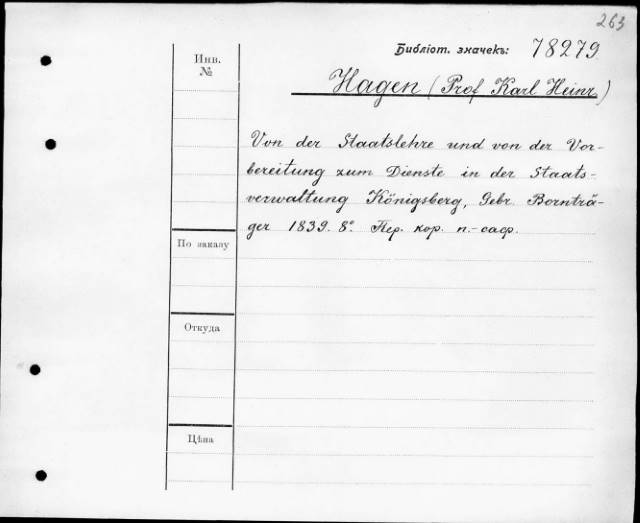 263
Библіот. значекъ: 78279.
Инв.
№
Hagen (Prof Karl Heinr.)
Von der Staatslehre und von der Vor-
bereitung zum Dienste in der Staats-
verwaltung Königsberg, Gebr. Bornträ-
ger 1839. 8º. Пер. кор. п.-саф.
По заказу
Откуда
Цѣна